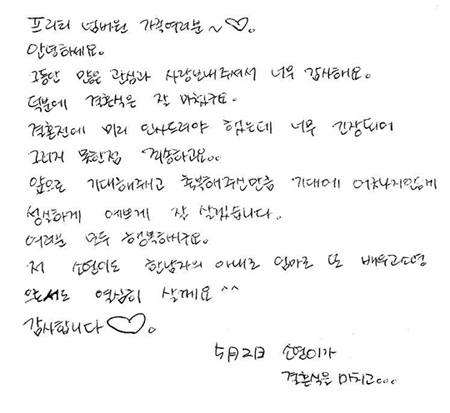 프리티 넘버원 가족여러분~♡.
안녕하세요.
그동안 많은 관심과 사랑보내주셔서 너무 감사해요.
덕분에 결혼식은 잘 마쳤구요.
결혼전에 미리 인사드려야 했는데 너무 긴장되어
그러지 못한점 죄송하고요..
앞으로 기대해주시고 축복해주신만큼 기대에 어긋나지않게
성실하게 예쁘게 잘 살겠습니다.
여러분 모두 행복하시구요.
저 소연이도 한남자의 아내로 엄마로 또 배우고소영
으로서도 열심히 살께요 ^^
감사합니다 ♡.
5月2日 소연이가
결혼식을 마치고...